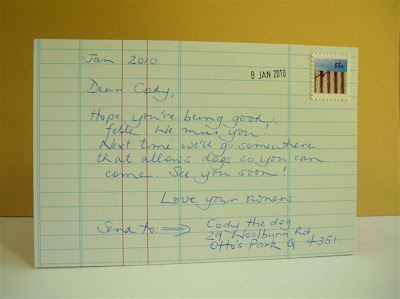 Jan 2010
8 JAN 2010
55c
Dear Cody,
Hope you're being good,
fella. We miss you!
Next time we'll go somewhere
that allows dogs so you can
come. See you soon!
Love your owners
Send to
Cody the dog
29 Woolburn Rd
Otto's Park Q 4351.